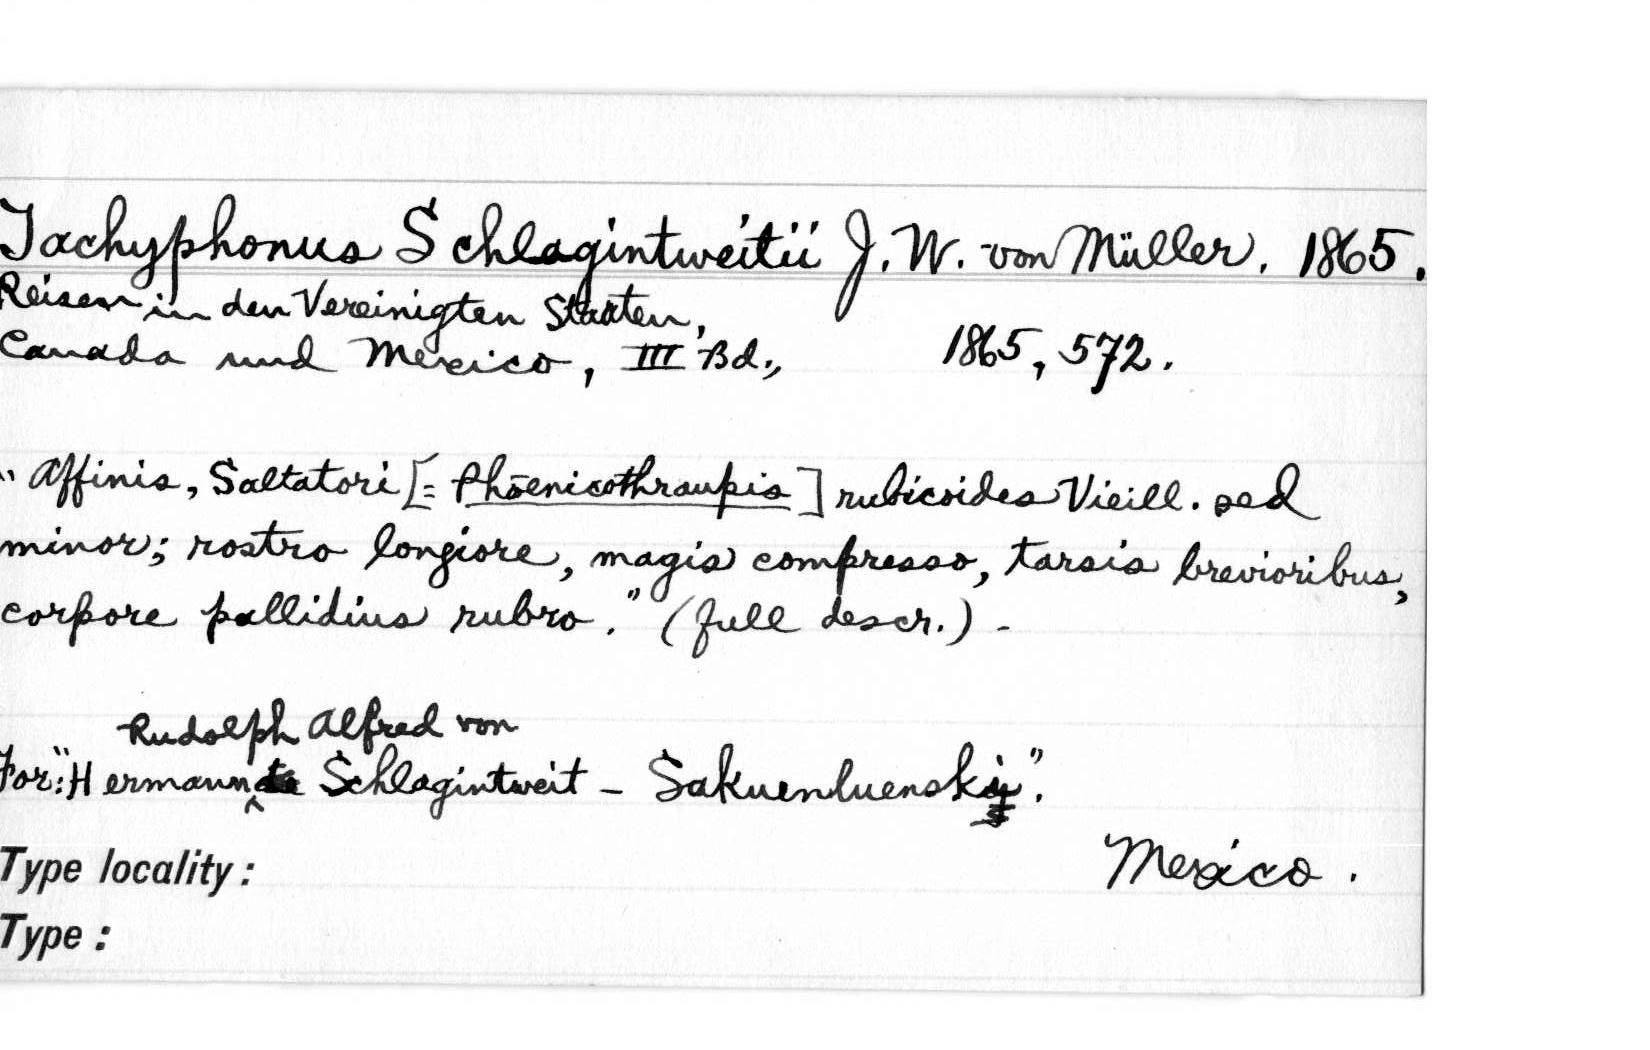 Tachyphonus Schlagintweitii J. W. von Müller. 1865.
Reisen in den Vereinigten Staaten,
Canada und Mexico, III Bd., 1865, 572.
"Affinis, Saltatori [= Phoenicothraupis] rubicoides Vieill. sed
minor; rostro longiore, magis compresso, tarsis brevioribus,
corpore pallidius rubro." (full descr.) -
Rudolph Alfred von
For: "Hermann Schlagintweit - Sakuenluenski".
Mexico.
Type locality:
Type: